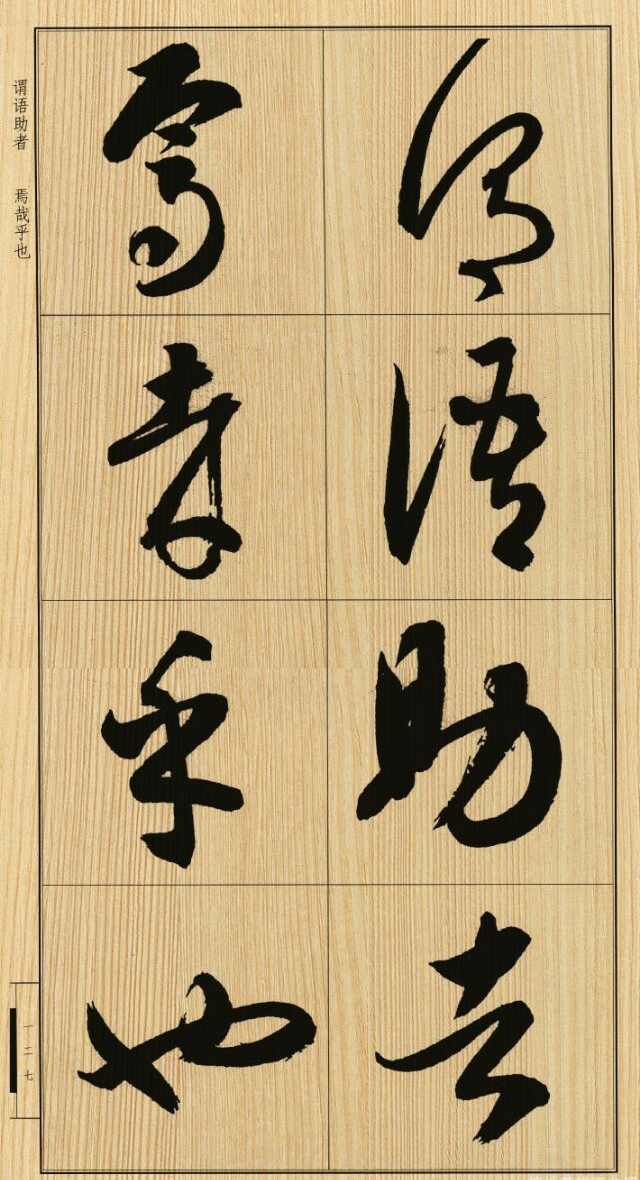 谓语助者
焉哉乎也
谓语助者 焉哉乎也
一二七